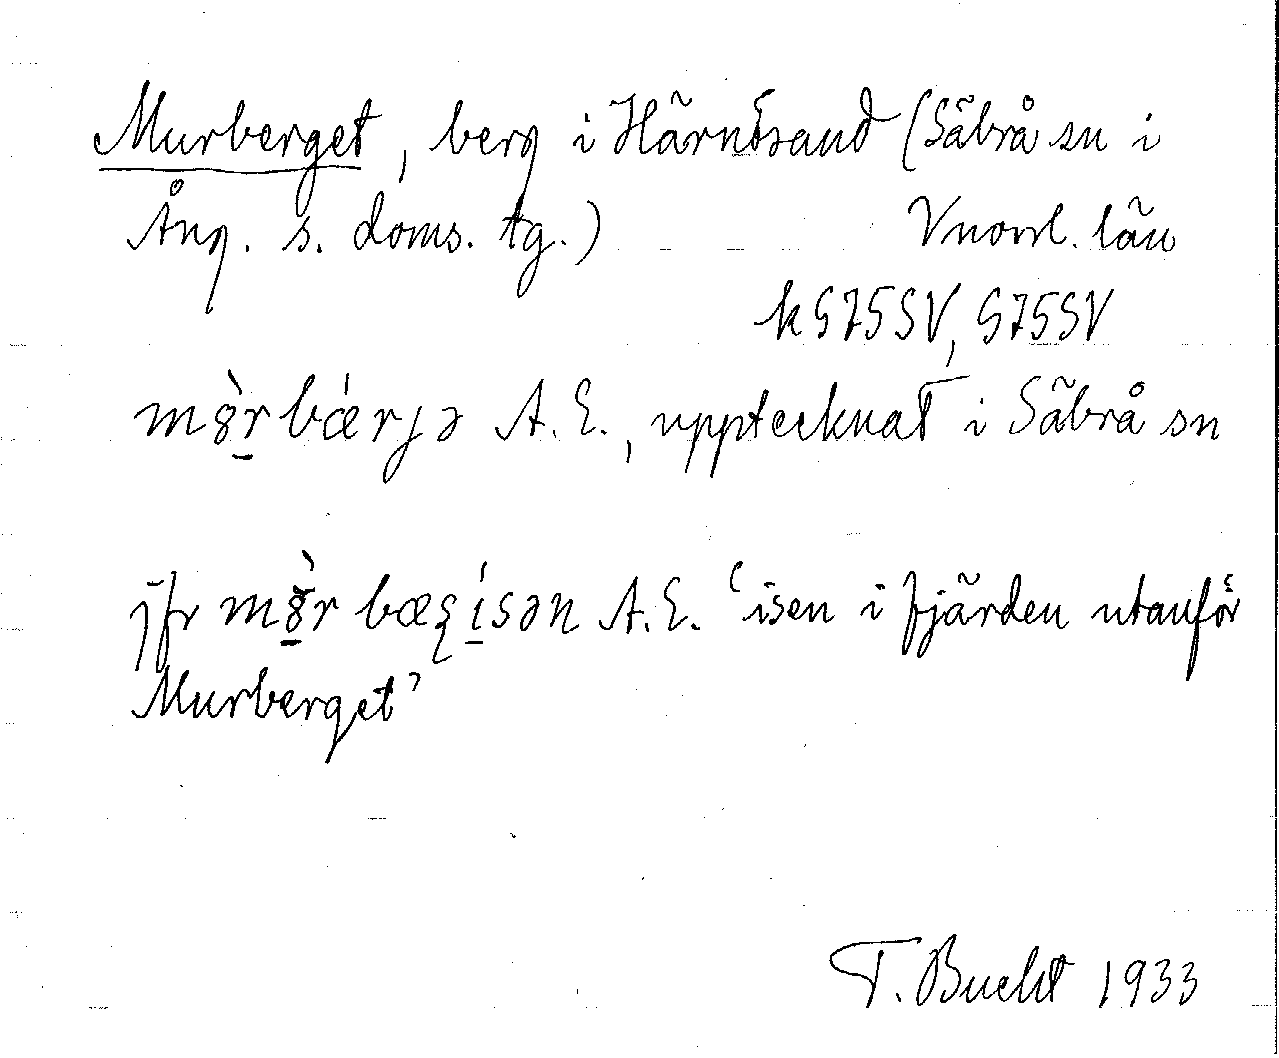 Murberget, berg i Härnösand (Säbrå sn i
Ång. s. doms. tg.) Vnorrl. län
k S75SV, S75SV
mȣ̀r bǽrɟə A.E., upptecknat i Säbrå sn
jfr mȣ̀r bæʒísən A.E. 'isen i fjärden utanför
Murberget'
T. Bucht 1933